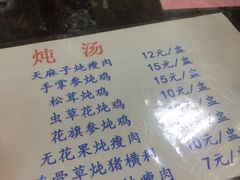 炖汤
天麻子炖瘦肉 12元/盅
手掌参炖鸡 15元/盅
松茸炖鸡 15元/盅
虫草花炖鸡 10元/盅
花旗参炖鸡 10元/盅
无花果炖瘦肉 10元/盅
骨草炖猪横利 7元/盅